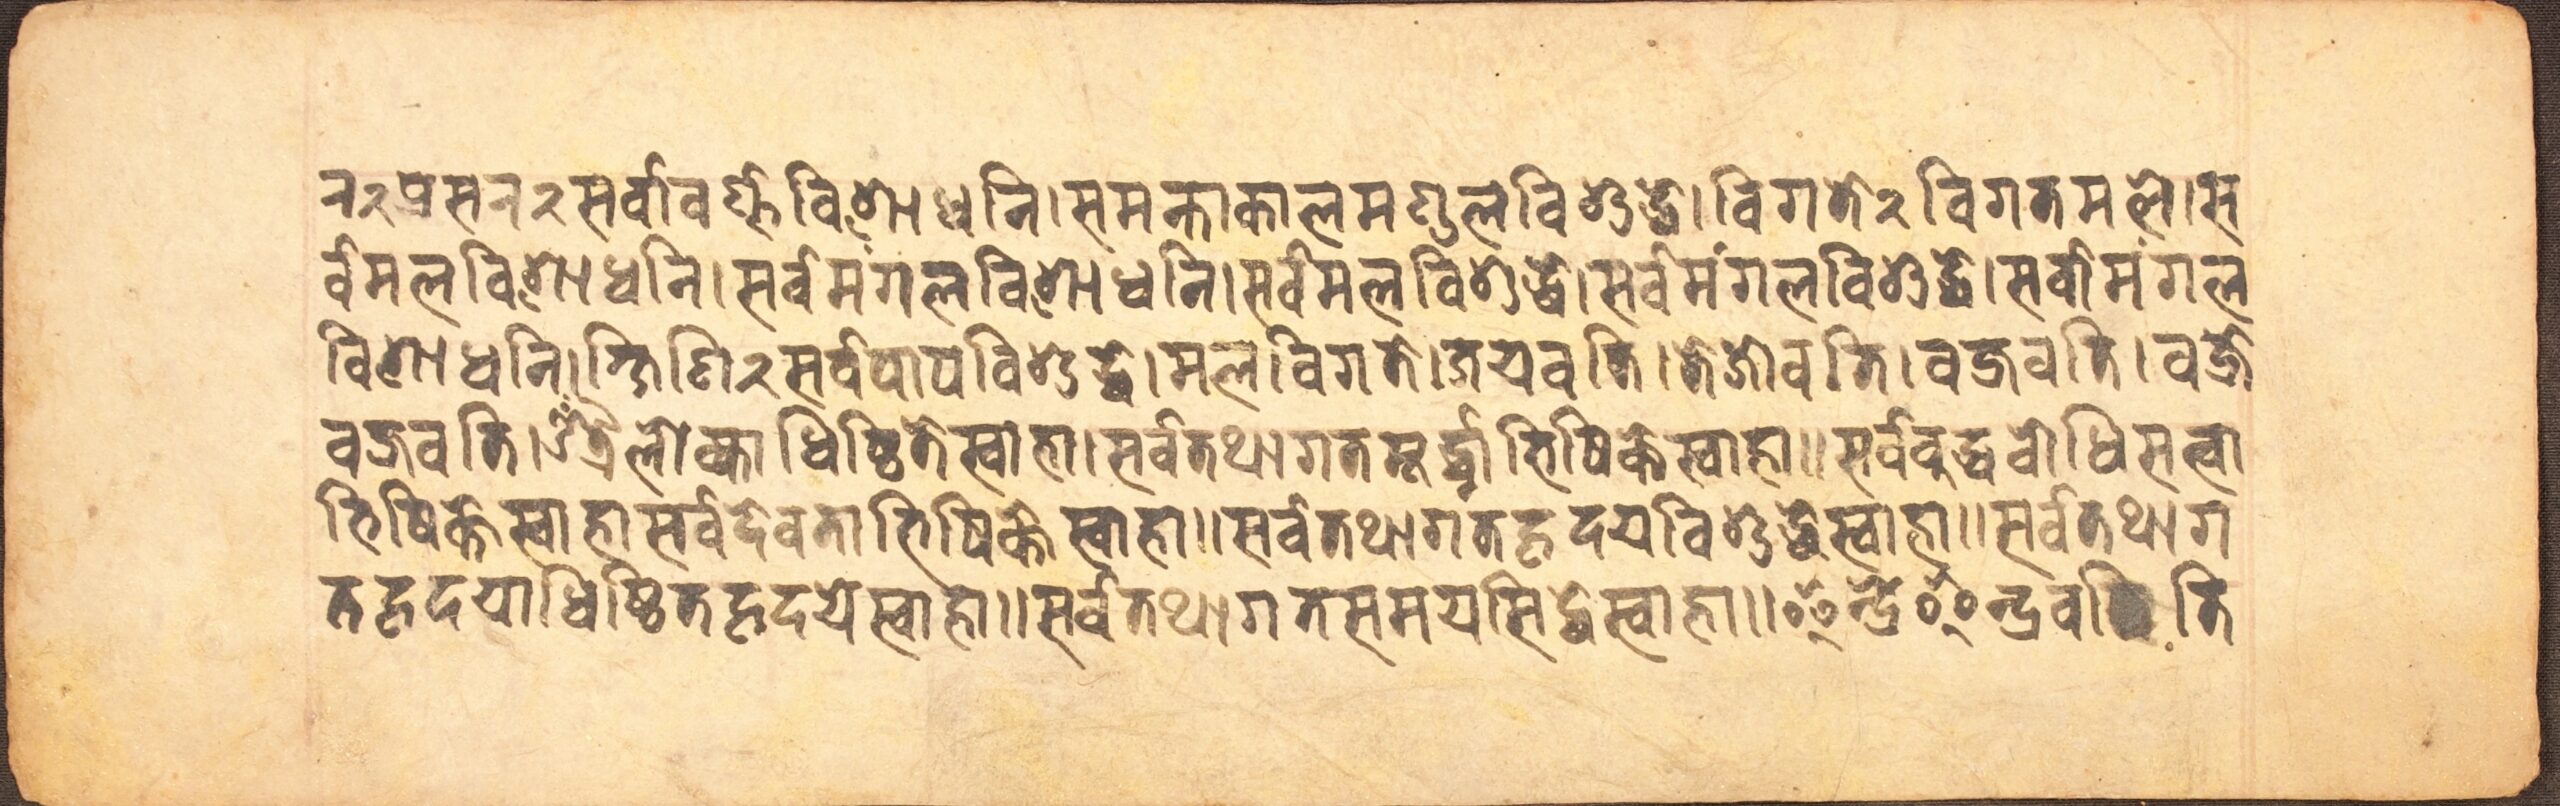 न२प्रसन२सर्वावर्ण्णविशोधनि।समन्ताकालमण्डलविशुद्धे।विगते२विगतमले।स
र्वमलविशोधनि।सर्वमंगलविशोधनि।सर्वमलविशुद्धे।सर्वमंगलविशुद्धे।सर्वामंगल
विशोधनि।क्षिणि२सर्वपापविशुद्धे।मलविगते।जयवति।तेजोवति।वज्रवति।वज्रे
वज्रवति।त्रैलोक्याधिष्ठितेस्वाहा।सर्वतथागतमूर्द्धाभिषिक्तेस्वाहा॥सर्वबुद्धबोधिसत्वा
भिषिक्तेस्वाहासर्वदेवताभिषिक्तेस्वाहा॥सर्वतथागतहृदयविशुद्धेस्वाहा॥सर्वतथाग
तहृदयाधिष्ठितहृदयेस्वाहा॥सर्वतथागतसमयसिद्धेस्वाहा॥इन्द्रेइन्द्रवति